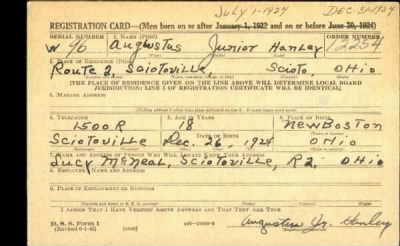 JULY 1-1924 DEC-31-1924
REGISTRATION CARD—(Men born on or after January 1, 1922 and on or before June 30, 1924)
SERIAL NUMBER 1. NAME (Print) ORDER NUMBER
W 46 Augustus Junior Hanley 12254
2. PLACE OF RESIDENCE (Print)
Route 2 Sciotoville Scioto, Ohio
[THE PLACE OF RESIDENCE GIVEN ON THE LINE ABOVE WILL DETERMINE LOCAL BOARD
JURISDICTION; LINE 2 OF REGISTRATION CERTIFICATE WILL BE IDENTICAL]
3. MAILING ADDRESS
4. TELEPHONE 5. AGE IN YEARS 6. PLACE OF BIRTH
1500R 18 New Boston
DATE OF BIRTH
Sciotoville Dec. 26, 1924 Ohio
7. NAME AND ADDRESS OF PERSON WHO WILL ALWAYS KNOW YOUR ADDRESS
Lucy McNeal, Sciotoville, R2, Ohio
8. EMPLOYER'S NAME AND ADDRESS
9. PLACE OF EMPLOYMENT OR BUSINESS
I AFFIRM THAT I HAVE VERIFIED ABOVE ANSWERS AND THAT THEY ARE TRUE.
D. S. S. Form 1
(Revised 6-1-42)
Augustus Jr. Hanley